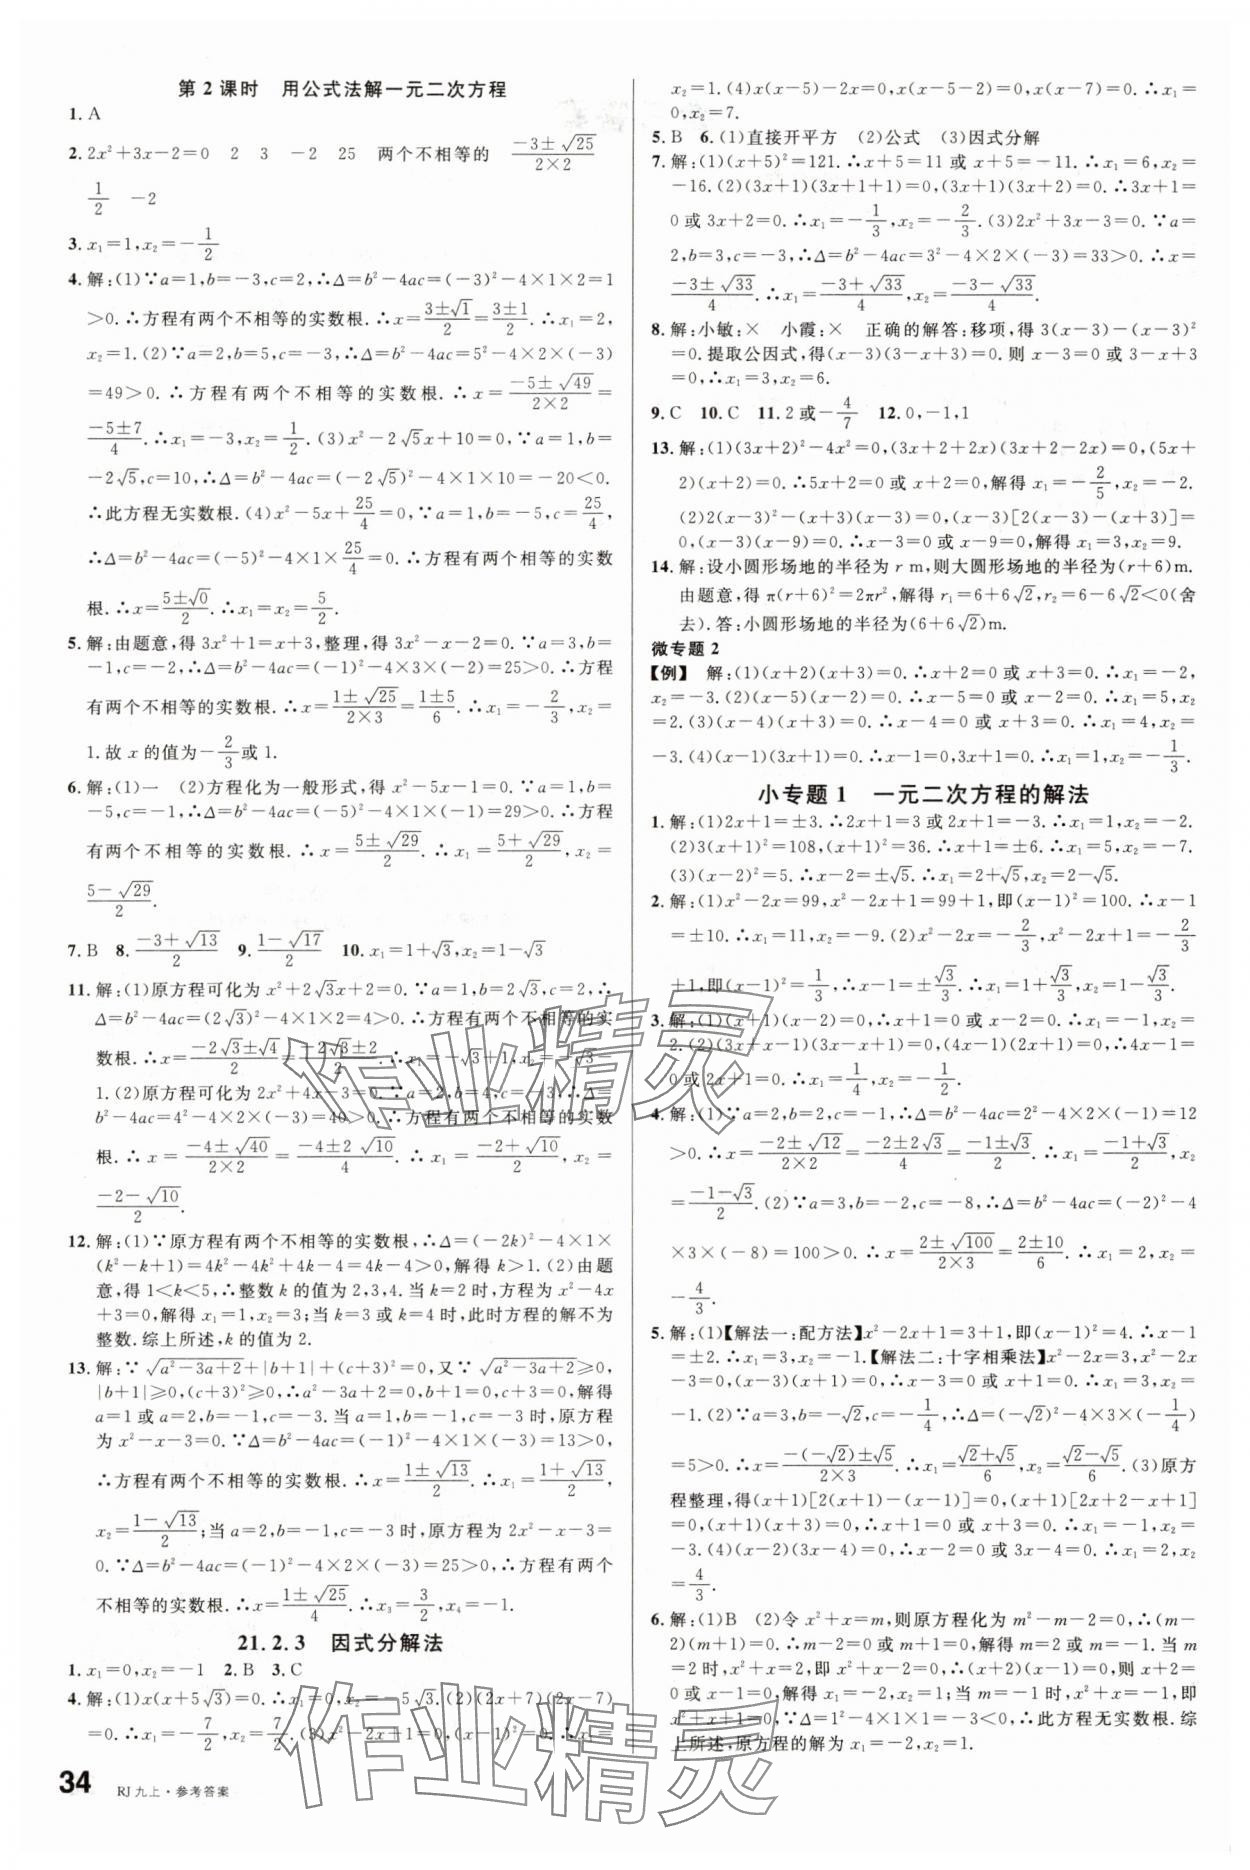 第 2 课时　用公式法解一元二次方程
1. A
2. 2x²+3x−2=0　2　3　−2　25　两个不相等的　(−3±√25)/(2×2)
1/2　−2
3. x₁=1,x₂=−1/2
4. 解:(1)∵a=1,b=−3,c=2,∴Δ=b²−4ac=(−3)²−4×1×2=1
>0.∴方程有两个不相等的实数根.∴x=(3±√1)/2=(3±1)/2.∴x₁=2,
x₂=1.(2)∵a=2,b=5,c=−3,∴Δ=b²−4ac=5²−4×2×(−3)
=49>0.∴方程有两个不相等的实数根.∴x=(−5±√49)/(2×2)=
(−5±7)/4.∴x₁=−3,x₂=1/2.(3)x²−2√5x+10=0,∵a=1,b=
−2√5,c=10,∴Δ=b²−4ac=(−2√5)²−4×1×10=−20<0.
∴此方程无实数根.(4)x²−5x+25/4=0,∵a=1,b=−5,c=25/4,
∴Δ=b²−4ac=(−5)²−4×1×25/4=0.∴方程有两个相等的实数
根.∴x=(5±√0)/2.∴x₁=x₂=5/2.
5. 解:由题意,得 3x²+1=x+3,整理,得 3x²−x−2=0.∵a=3,b=
−1,c=−2,∴Δ=b²−4ac=(−1)²−4×3×(−2)=25>0.∴方程
有两个不相等的实数根.∴x=(1±√25)/(2×3)=(1±5)/6.∴x₁=−2/3,x₂=
1.故 x 的值为−2/3或 1.
6. 解:(1)一　(2)方程化为一般形式,得 x²−5x−1=0.∵a=1,b=
−5,c=−1,∴Δ=b²−4ac=(−5)²−4×1×(−1)=29>0.∴方程
有两个不相等的实数根.∴x=(5±√29)/2.∴x₁=(5+√29)/2,x₂=
(5−√29)/2.
7. B　8. (−3+√13)/2　9. (1−√17)/2　10. x₁=1+√3,x₂=1−√3
11. 解:(1)原方程可化为 x²+2√3x+2=0.∵a=1,b=2√3,c=2,∴
Δ=b²−4ac=(2√3)²−4×1×2=4>0.∴方程有两个不相等的实
数根.∴x=(−2√3±√4)/2=(−2√3±2)/2.∴x₁=−√3+1,x₂=−√3−
1.(2)原方程可化为 2x²+4x−3=0.∵a=2,b=4,c=−3,∴Δ=
b²−4ac=4²−4×2×(−3)=40>0.∴方程有两个不相等的实数
根.∴x=(−4±√40)/(2×2)=(−4±2√10)/4.∴x₁=(−2+√10)/2,x₂=
(−2−√10)/2.
12. 解:(1)∵原方程有两个不相等的实数根,∴Δ=(−2k)²−4×1×
(k²−k+1)=4k²−4k²+4k−4=4k−4>0,解得 k>1.(2)由题
意,得 1<k<5,∴整数 k 的值为 2,3,4.当 k=2 时,方程为 x²−4x
+3=0,解得 x₁=1,x₂=3;当 k=3 或 k=4 时,此时方程的解不为
整数.综上所述,k 的值为 2.
13. 解:∵√(a²−3a+2)+|b+1|+(c+3)²=0,又∵√(a²−3a+2)≥0,
|b+1|≥0,(c+3)²≥0,∴a²−3a+2=0,b+1=0,c+3=0,解得
a=1 或 a=2,b=−1,c=−3.当 a=1,b=−1,c=−3 时,原方程
为 x²−x−3=0.∵Δ=b²−4ac=(−1)²−4×1×(−3)=13>0,
∴方程有两个不相等的实数根.∴x=(1±√13)/2.∴x₁=(1+√13)/2,
x₂=(1−√13)/2;当 a=2,b=−1,c=−3 时,原方程为 2x²−x−3=
0.∵Δ=b²−4ac=(−1)²−4×2×(−3)=25>0,∴方程有两个
不相等的实数根.∴x=(1±√25)/4.∴x₃=3/2,x₄=−1.
21.2.3　因式分解法
1. x₁=0,x₂=−1　2. B　3. C
4. 解:(1)x(x+5√3)=0.∴x₁=0,x₂=−5√3.(2)(2x+7)(2x−7)
=0.∴x₁=−7/2,x₂=7/2.(3)x²−2x+1=0,(x−1)²=0.∴x₁=
x₂=1.(4)x(x−5)−2x=0,x(x−5−2)=0,x(x−7)=0.∴x₁=
0,x₂=7.
5. B　6. (1)直接开平方　(2)公式　(3)因式分解
7. 解:(1)(x+5)²=121.∴x+5=11 或 x+5=−11.∴x₁=6,x₂=
−16.(2)(3x+1)(3x+1+1)=0,(3x+1)(3x+2)=0.∴3x+1=
0 或 3x+2=0.∴x₁=−1/3,x₂=−2/3.(3)2x²+3x−3=0.∵a=
2,b=3,c=−3,∴Δ=b²−4ac=3²−4×2×(−3)=33>0.∴x=
(−3±√33)/4.∴x₁=(−3+√33)/4,x₂=(−3−√33)/4.
8. 解:小敏:×　小霞:×　正确的解答:移项,得 3(x−3)−(x−3)²
=0.提取公因式,得(x−3)(3−x+3)=0.则 x−3=0 或 3−x+3
=0,∴x₁=3,x₂=6.
9. C　10. C　11. 2 或−4/7　12. 0,−1,1
13. 解:(1)(3x+2)²−4x²=0,(3x+2+2x)(3x+2−2x)=0,(5x+
2)(x+2)=0.∴5x+2=0 或 x+2=0,解得 x₁=−2/5,x₂=−2.
(2)2(x−3)²−(x+3)(x−3)=0,(x−3)[2(x−3)−(x+3)]=
0,(x−3)(x−9)=0.∴x−3=0 或 x−9=0,解得 x₁=3,x₂=9.
14. 解:设小圆形场地的半径为 r m,则大圆形场地的半径为(r+6)m.
由题意,得 π(r+6)²=2πr²,解得 r₁=6+6√2,r₂=6−6√2<0(舍
去).答:小圆形场地的半径为(6+6√2)m.
微专题 2
【例】　解:(1)(x+2)(x+3)=0.∴x+2=0 或 x+3=0.∴x₁=−2,
x₂=−3.(2)(x−5)(x−2)=0.∴x−5=0 或 x−2=0.∴x₁=5,x₂
=2.(3)(x−4)(x+3)=0.∴x−4=0 或 x+3=0.∴x₁=4,x₂=
−3.(4)(x−1)(3x+1)=0.∴x−1=0,3x+1=0.∴x₁=1,x₂=−1/3.
小专题 1　一元二次方程的解法
1. 解:(1)2x+1=±3.∴2x+1=3 或 2x+1=−3.∴x₁=1,x₂=−2.
(2)3(x+1)²=108,(x+1)²=36.∴x+1=±6.∴x₁=5,x₂=−7.
(3)(x−2)²=5.∴x−2=±√5.∴x₁=2+√5,x₂=2−√5.
2. 解:(1)x²−2x=99,x²−2x+1=99+1,即(x−1)²=100.∴x−1
=±10.∴x₁=11,x₂=−9.(2)x²−2x=−2/3,x²−2x+1=−2/3
+1,即(x−1)²=1/3.∴x−1=±√3/3.∴x₁=1+√3/3,x₂=1−√3/3.
3. 解:(1)(x+1)(x−2)=0,∴x+1=0 或 x−2=0.∴x₁=−1,x₂=
2.(2)(3x+x−1)(3x−x+1)=0,(4x−1)(2x+1)=0.∴4x−1=
0 或 2x+1=0.∴x₁=1/4,x₂=−1/2.
4. 解:(1)∵a=2,b=2,c=−1,∴Δ=b²−4ac=2²−4×2×(−1)=12
>0.∴x=(−2±√12)/(2×2)=(−2±2√3)/4=(−1±√3)/2.∴x₁=(−1+√3)/2,x₂
=(−1−√3)/2.(2)∵a=3,b=−2,c=−8,∴Δ=b²−4ac=(−2)²−4
×3×(−8)=100>0.∴x=(2±√100)/(2×3)=(2±10)/6.∴x₁=2,x₂=
−4/3.
5. 解:(1)【解法一:配方法】x²−2x+1=3+1,即(x−1)²=4.∴x−1
=±2.∴x₁=3,x₂=−1.【解法二:十字相乘法】x²−2x=3,x²−2x
−3=0,(x−3)(x+1)=0.∴x−3=0 或 x+1=0.∴x₁=3,x₂=
−1.(2)∵a=3,b=−√2,c=−1/4,∴Δ=(−√2)²−4×3×(−1/4)
=5>0.∴x=(−(−√2)±√5)/(2×3).∴x₁=(√2+√5)/6,x₂=(√2−√5)/6.(3)原方
程整理,得(x+1)[2(x+1)−(x−1)]=0,(x+1)[2x+2−x+1]
=0,(x+1)(x+3)=0.∴x+1=0 或 x+3=0.∴x₁=−1,x₂=
−3.(4)(x−2)(3x−4)=0.∴x−2=0 或 3x−4=0.∴x₁=2,x₂=
4/3.
6. 解:(1)B　(2)令 x²+x=m,则原方程化为 m²−m−2=0,∴(m−
2)(m+1)=0.∴m−2=0 或 m+1=0,解得 m=2 或 m=−1.当 m
=2 时,x²+x=2,即 x²+x−2=0,∴(x+2)(x−1)=0,则 x+2
=0 或 x−1=0,解得 x₁=−2,x₂=1;当 m=−1 时,x²+x=−1,即
x²+x+1=0,∵Δ=1²−4×1×1=−3<0,∴此方程无实数根.综
上所述,原方程的解为 x₁=−2,x₂=1.
34　RJ 九上·参考答案
作业精灵
作业精灵